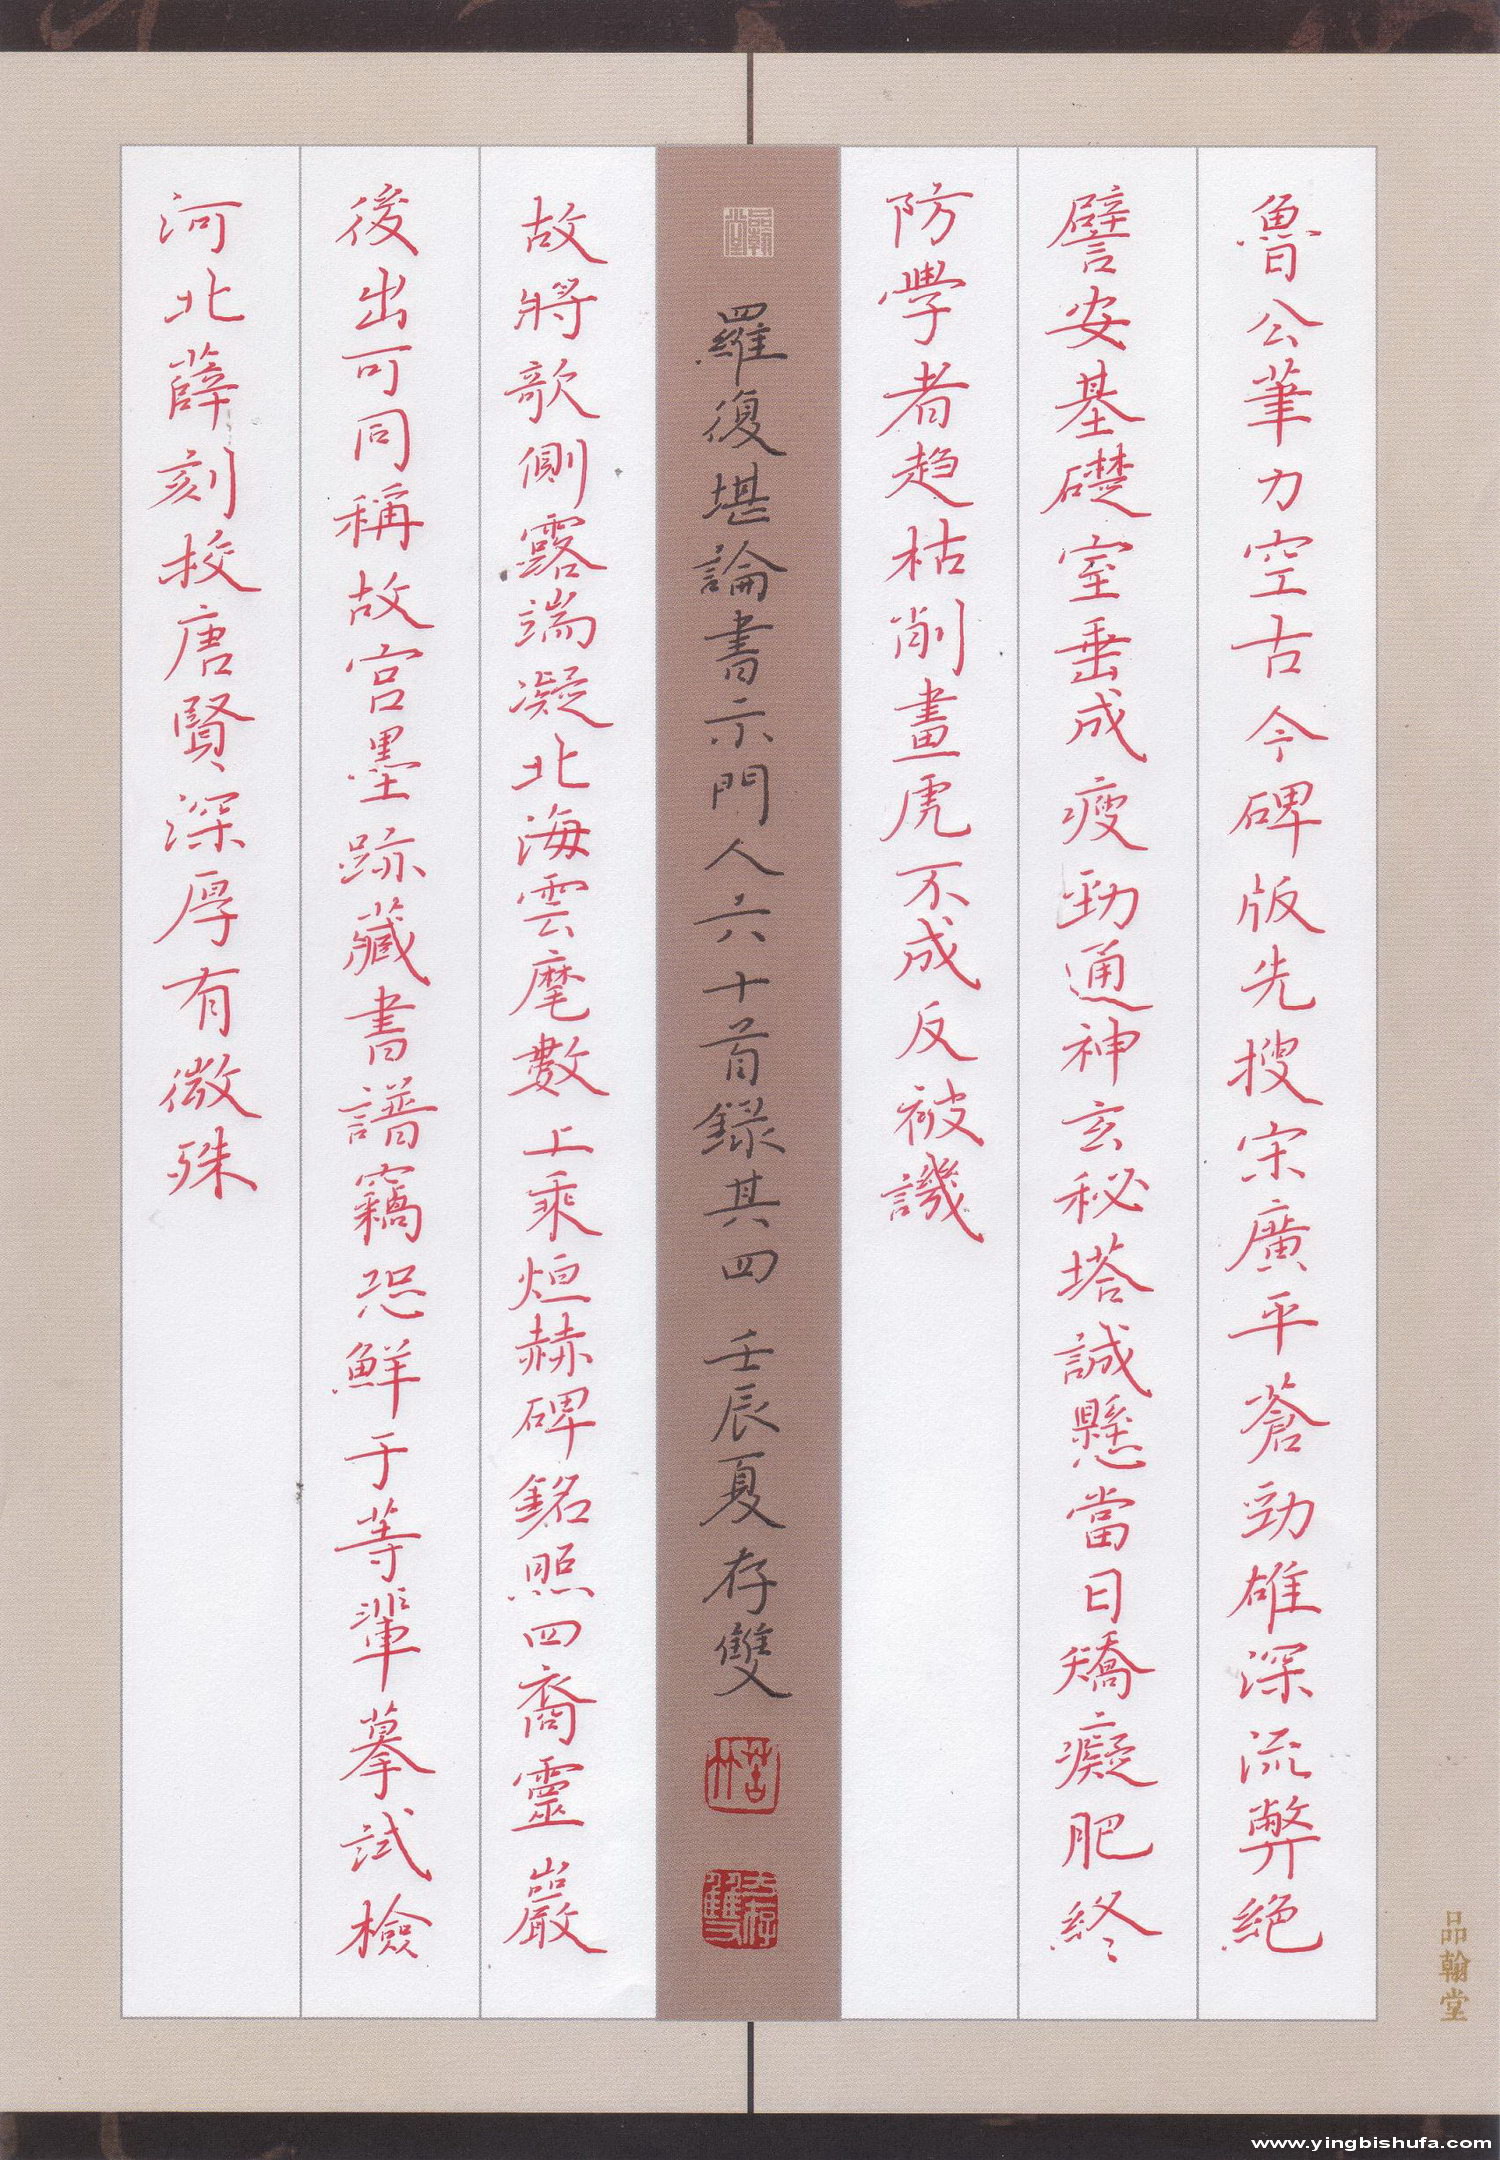 魯公筆力空古今碑版先搜宋廣平蒼勁雄深流弊絕
譬安基礎室垂成瘦勁通神玄秘塔誠懸當日矯癡肥終
防學者趨枯削畫虎不成反被譏
羅復堪論書示門人六十首錄其四 壬辰夏存雙
故將欹側露端凝北海雲麾數上乘烜赫碑銘照四裔靈巖
後出可同稱故宮墨跡藏書譜竊恐鮮于等輩摹試檢
河北薛刻校唐賢深厚有微殊
品翰堂
www.yingbishufa.com